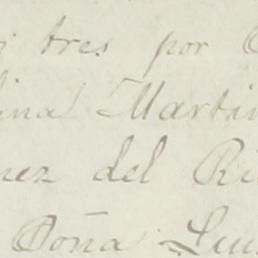 tres por
ina Martin
nez del Ri
Doña Luis